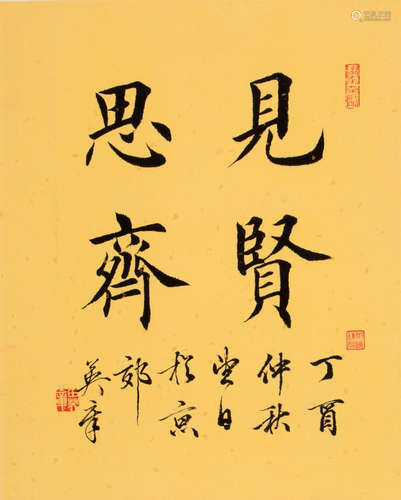 見賢
思齊
丁酉
仲秋
望日
於京
郊
英章